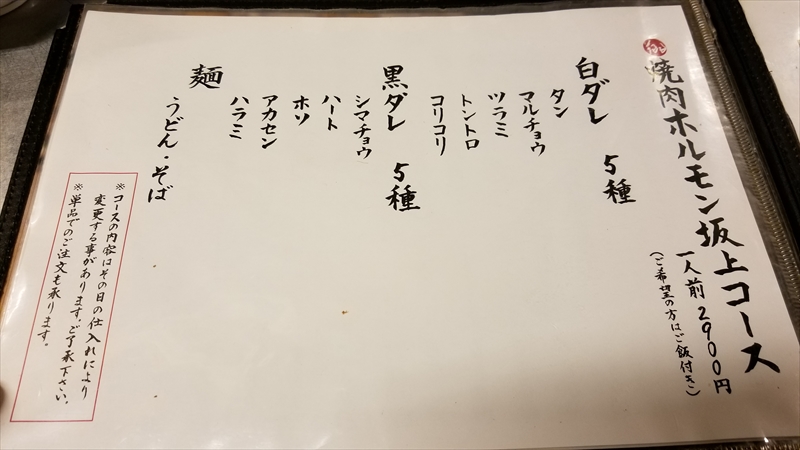 焼肉ホルモン坂上コース
一人前2900円
(ご希望の方はご飯付き)
白ダレ 5種
タン
マルチョウ
ツラミ
トントロ
コリコリ
黒ダレ 5種
シマチョウ
ハート
ホソ
アカセン
ハラミ
麺
うどん・そば
※コースの内容はその日の仕入れにより
変更する事があります。ご了承下さい。
※単品でのご注文も承ります。